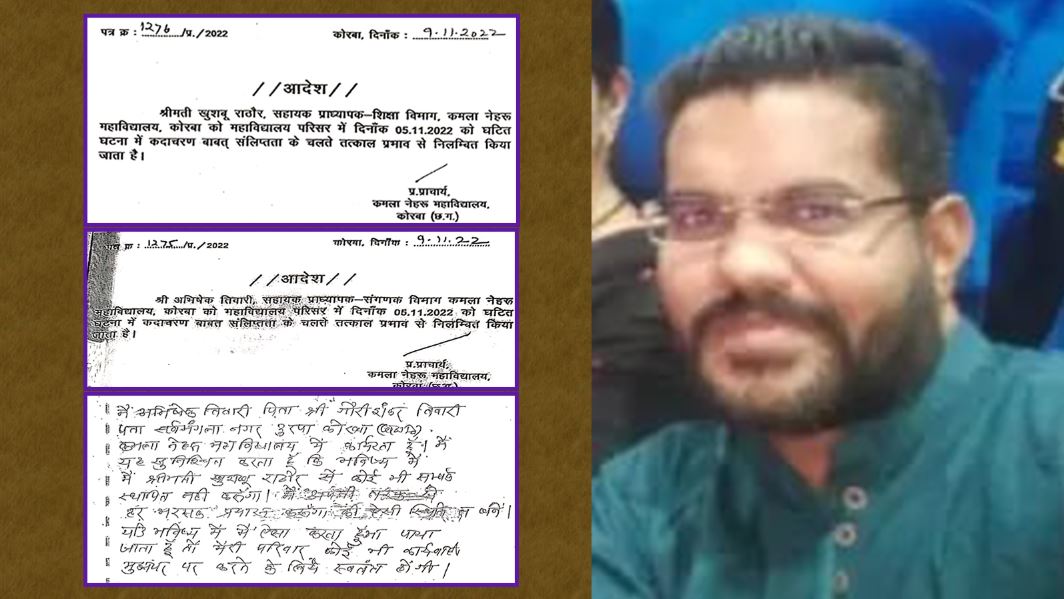 पत्र क्र : 1276 /प्र./2022 कोरबा, दिनाँक : 9.11.2022
//आदेश//
श्रीमती खुशबू राठौर, सहायक प्राध्यापक–शिक्षा विभाग, कमला नेहरू
महाविद्यालय, कोरबा को महाविद्यालय परिसर में दिनाँक 05.11.2022 को घटित
घटना में कदाचरण बाबत् संलिप्तता के चलते तत्काल प्रभाव से निलम्बित किया
जाता है।
प्र.प्राचार्य,
कमला नेहरू महाविद्यालय,
कोरबा (छ.ग.)
क्र : 1275 /प्र./2022 कोरबा, दिनाँक : 9.11.22
//आदेश//
श्री अभिषेक तिवारी, सहायक प्राध्यापक–संगणक विभाग कमला नेहरू
महाविद्यालय, कोरबा को महाविद्यालय परिसर में दिनाँक 05.11.2022 को घटित
घटना में कदाचरण बाबत संलिप्तता के चलते तत्काल प्रभाव से निलम्बित किया
जाता है।
प्र.प्राचार्य,
कमला नेहरू महाविद्यालय,
कोरबा (छ.ग.)
मैं अभिषेक तिवारी पिता श्री गौरीशंकर तिवारी
पता सर्वमंगला नगर दुरपा कोरबा
कमला नेहरू महाविद्यालय में कार्यरत हूँ। मैं
यह सुनिश्चित करता हूँ कि भविष्य में
मैं श्रीमती खुशबू राठौर से कोई भी सम्पर्क
स्थापित नहीं करूँगा। मैं अपनी तरफ से
हर भरसक प्रयास करूंगा की ऐसी स्थिति न बनें।
यदि भविष्य में मैं ऐसा करता हुआ पाया
जाता हूँ तो मेरी परिवार कोई भी कार्यवाही
मुझपर पर करने के लिये स्वतंत्र होगी।